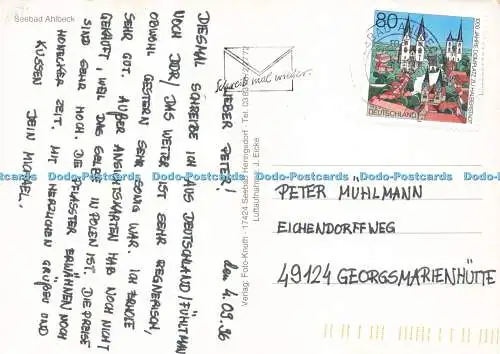 Seebad Ahlbeck
LIEBER PETER!
den 4.09.96
DIESMAL SCHREIBE ICH AUS DEUTSCHLAND/FÜHLT MAN
NOCH DDR/ DAS WETTER IST SEHR REGNERISCH,
OBWOHL GESTERN SEHR SONIG WAR. ICH ERHOLE
SEHR GUT. AUßER ANSICHTSKARTEN HAB NOCH NICHT
GEKAUFT, WEIL DAS SELBE IN POLEN IST. DIE PREISE
SIND SEHR HOCH. DIE PFLASSTER ERWÄHNEN NOCH
HONECKER ZEIT. MIT HERZLICHEN GRÜßEN UND
KÜSSEN DEIN MICHAEL.
Verlag: Foto-Knuth · 17424 Seebad Heringsdorf · Tel.
Luftaufnahme: J. Eicke
Schreib mal wieder.
80
DEUTSCHLAND
PETER MÜHLMANN
EICHENDORFFWEG
49124 GEORGSMARIENHÜTTE
Dodo-Postcards Dodo-Postcards Dodo-Postcards Dodo-Postcards Dodo-Postcards Dodo-Postcards